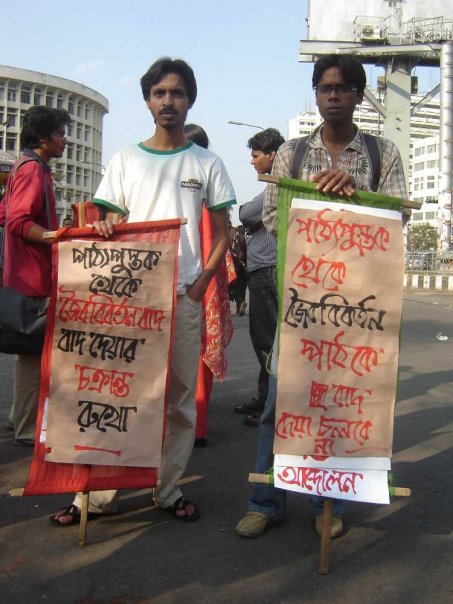 পাঠ্যপুস্তক
থেকে
জৈববিবর্তনবাদ
বাদ দেয়ার
চক্রান্ত
রুখো
পাঠ্যপুস্তক
থেকে
জৈববিবর্তন
পাঠকে
বাদ
দেয়া চলবে
না
আন্দোলন